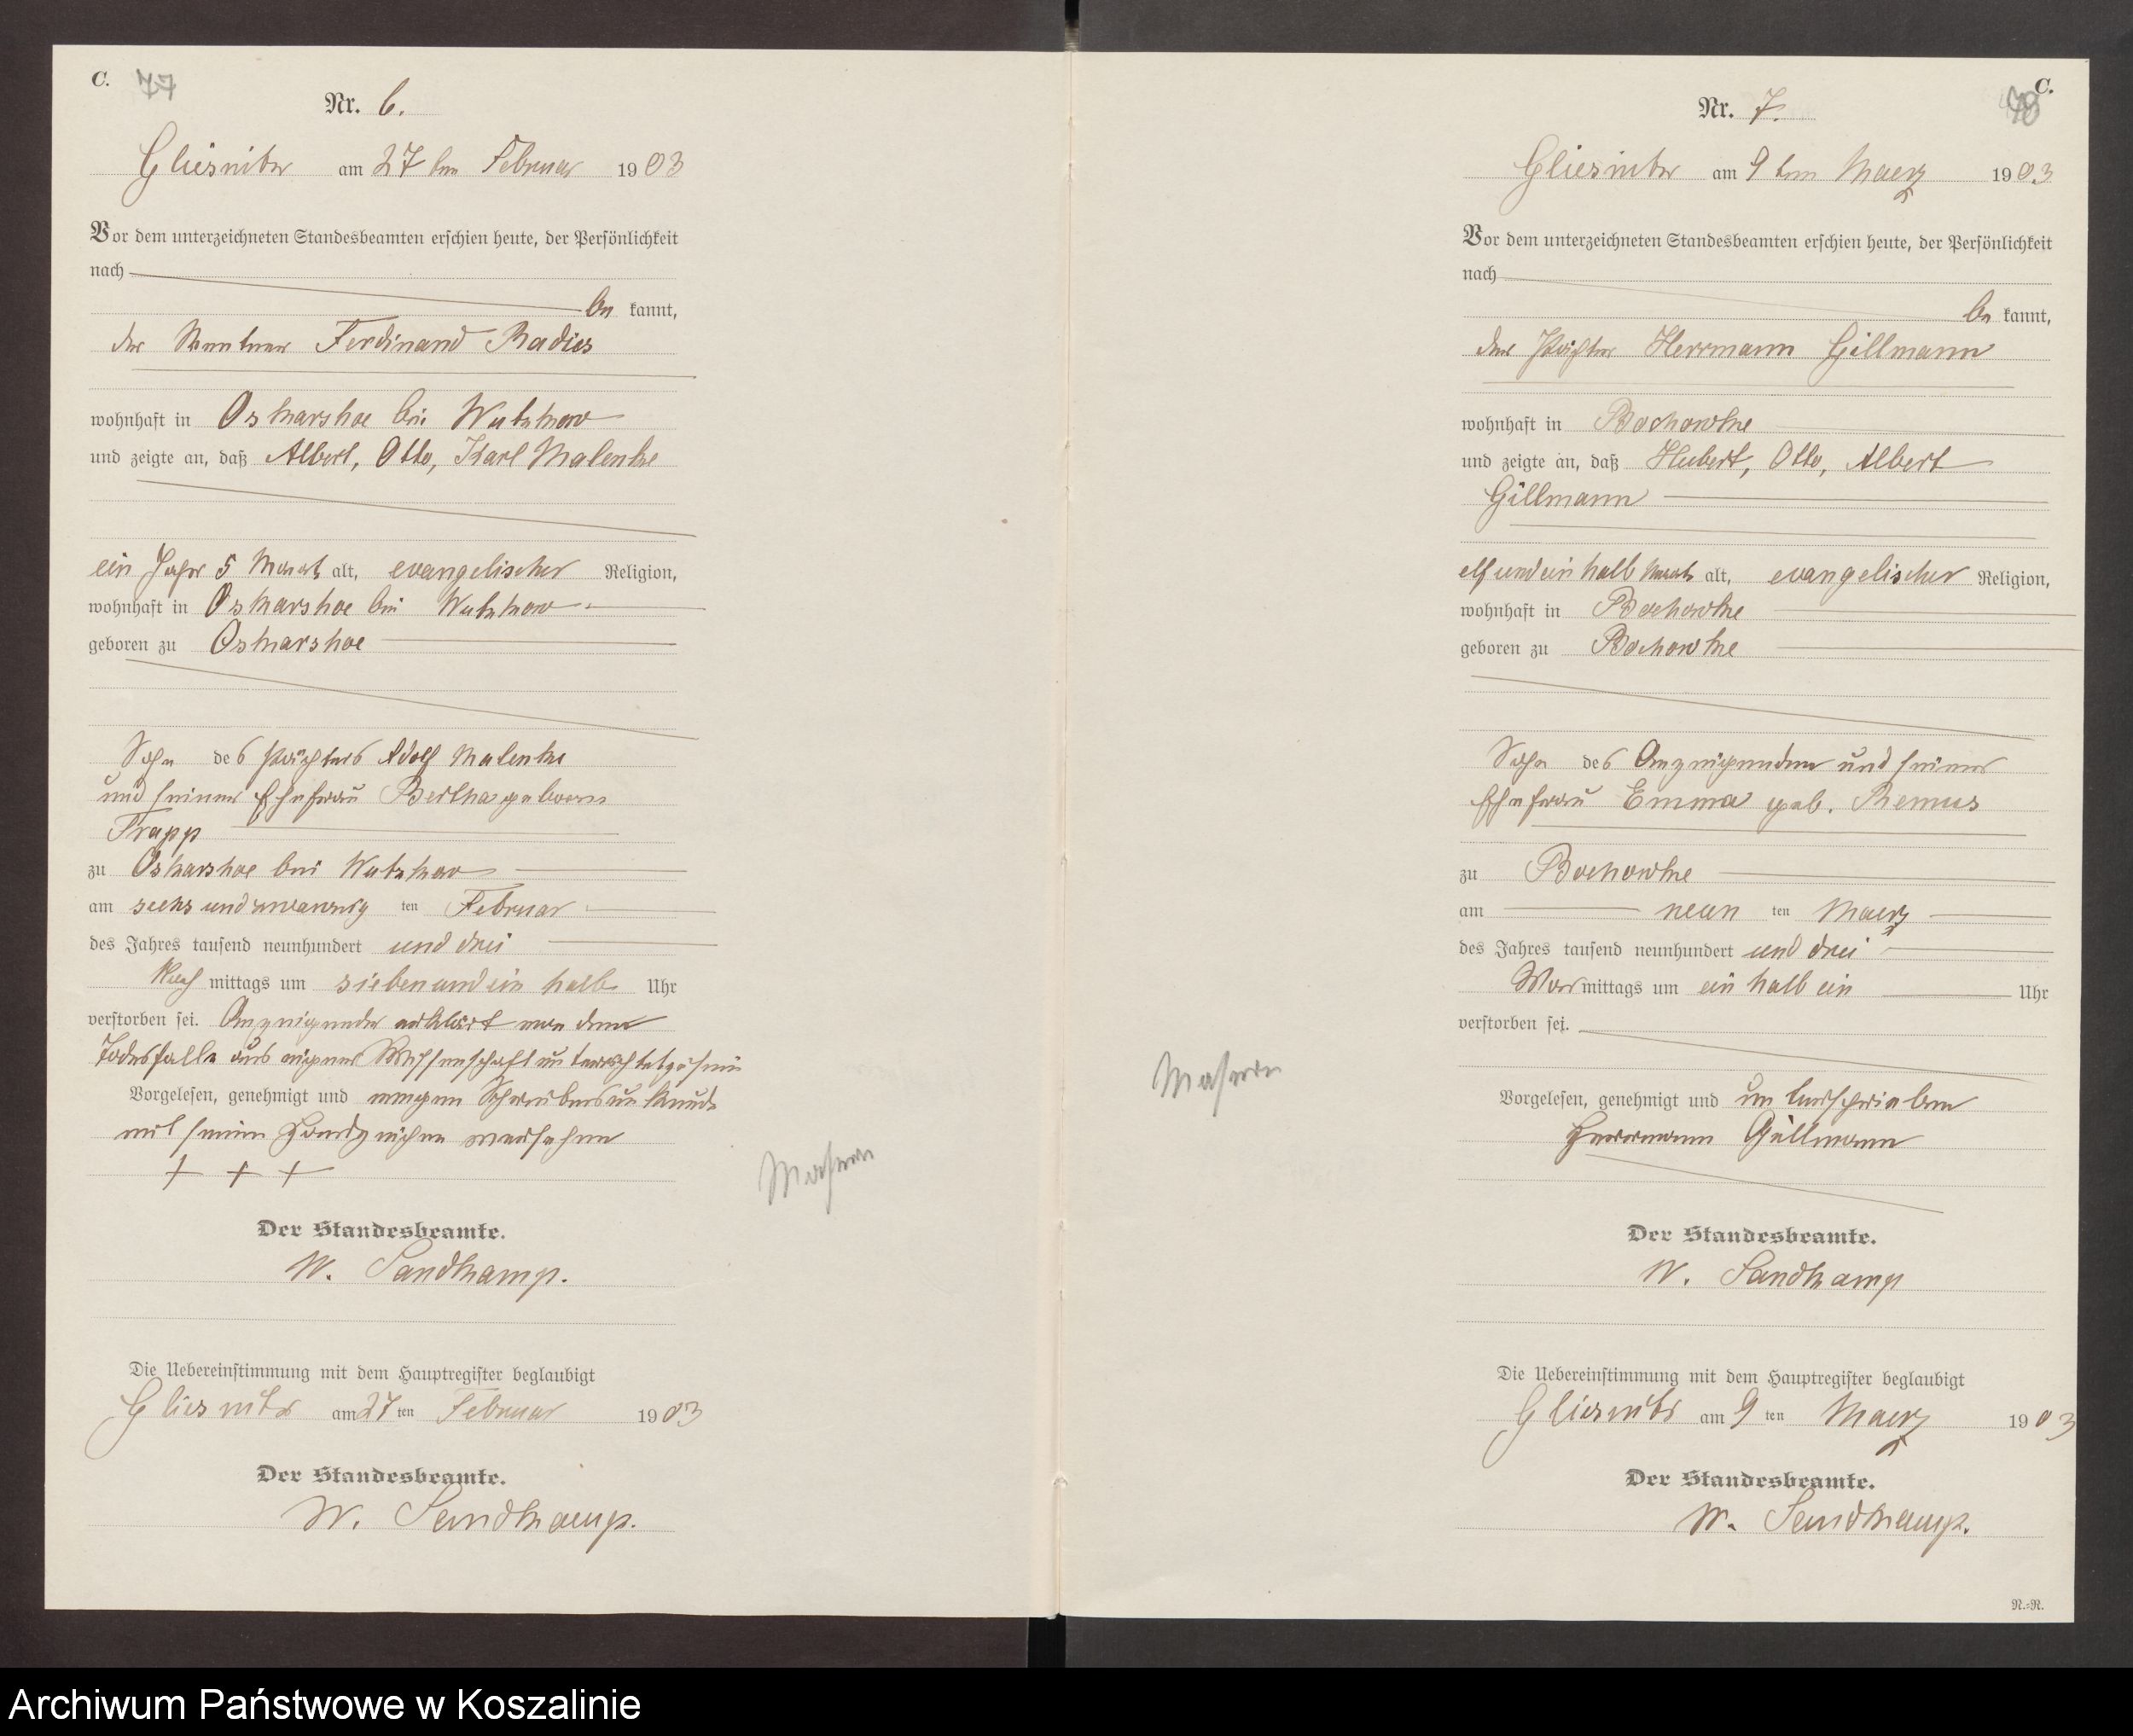 C. 77
Nr. 6.
Gliesnitz am 27ten Februar 1903
Vor dem unterzeichneten Standesbeamten erschien heute, der Persönlichkeit
nach
be kannt,
der Rentner Ferdinand Radies
wohnhaft in Oskarshoe bei Wutzkow
und zeigte an, daß Albert, Otto, Karl Malenke
ein Jahr 5 Monat alt, evangelischer Religion,
wohnhaft in Oskarshoe bei Wutzkow
geboren zu Oskarshoe
Sohn des Pächters Adolf Malenke
und seiner Ehefrau Bertha geboren
Trapp
zu Oskarshoe bei Wutzkow
am sechsundzwanzig ten Februar
des Jahres tausend neunhundert und drei
Nach mittags um siebenundein halb Uhr
verstorben sei. Anzeigender erklärt von dem
Todesfalle aus eigener Wissenschaft unterrichtet zu sein
Vorgelesen, genehmigt und wegen Schreibensunkunde
mit seinem Handzeichen versehen
+ + +
Der Standesbeamte.
W. Sandkamp.
Die Uebereinstimmung mit dem Hauptregister beglaubigt
Gliesnitz am 27 ten Februar 1903
Der Standesbeamte.
W. Sandkamp.
Masern
C.
78
Nr. 7.
Gliesnitz am 9ten Maerz 1903
Vor dem unterzeichneten Standesbeamten erschien heute, der Persönlichkeit
nach
be kannt,
der Pächter Herrmann Gillmann
wohnhaft in Bochowke
und zeigte an, daß Hubert, Otto, Albert
Gillmann
elf und ein halb Monat alt, evangelischer Religion,
wohnhaft in Bochowke
geboren zu Bochowke
Sohn des Anzeigenden und seiner
Ehefrau Emma geb. Remus
zu Bochowke
am neun ten Maerz
des Jahres tausend neunhundert und drei
Vor mittags um ein halb ein Uhr
verstorben sei.
Vorgelesen, genehmigt und unterschrieben
Herrmann Gillmann
Masern
Der Standesbeamte.
W. Sandkamp
Die Uebereinstimmung mit dem Hauptregister beglaubigt
Gliesnitz am 9 ten Maerz 1903
Der Standesbeamte.
W. Sandkamp.
N.=N.
Archiwum Państwowe w Koszalinie